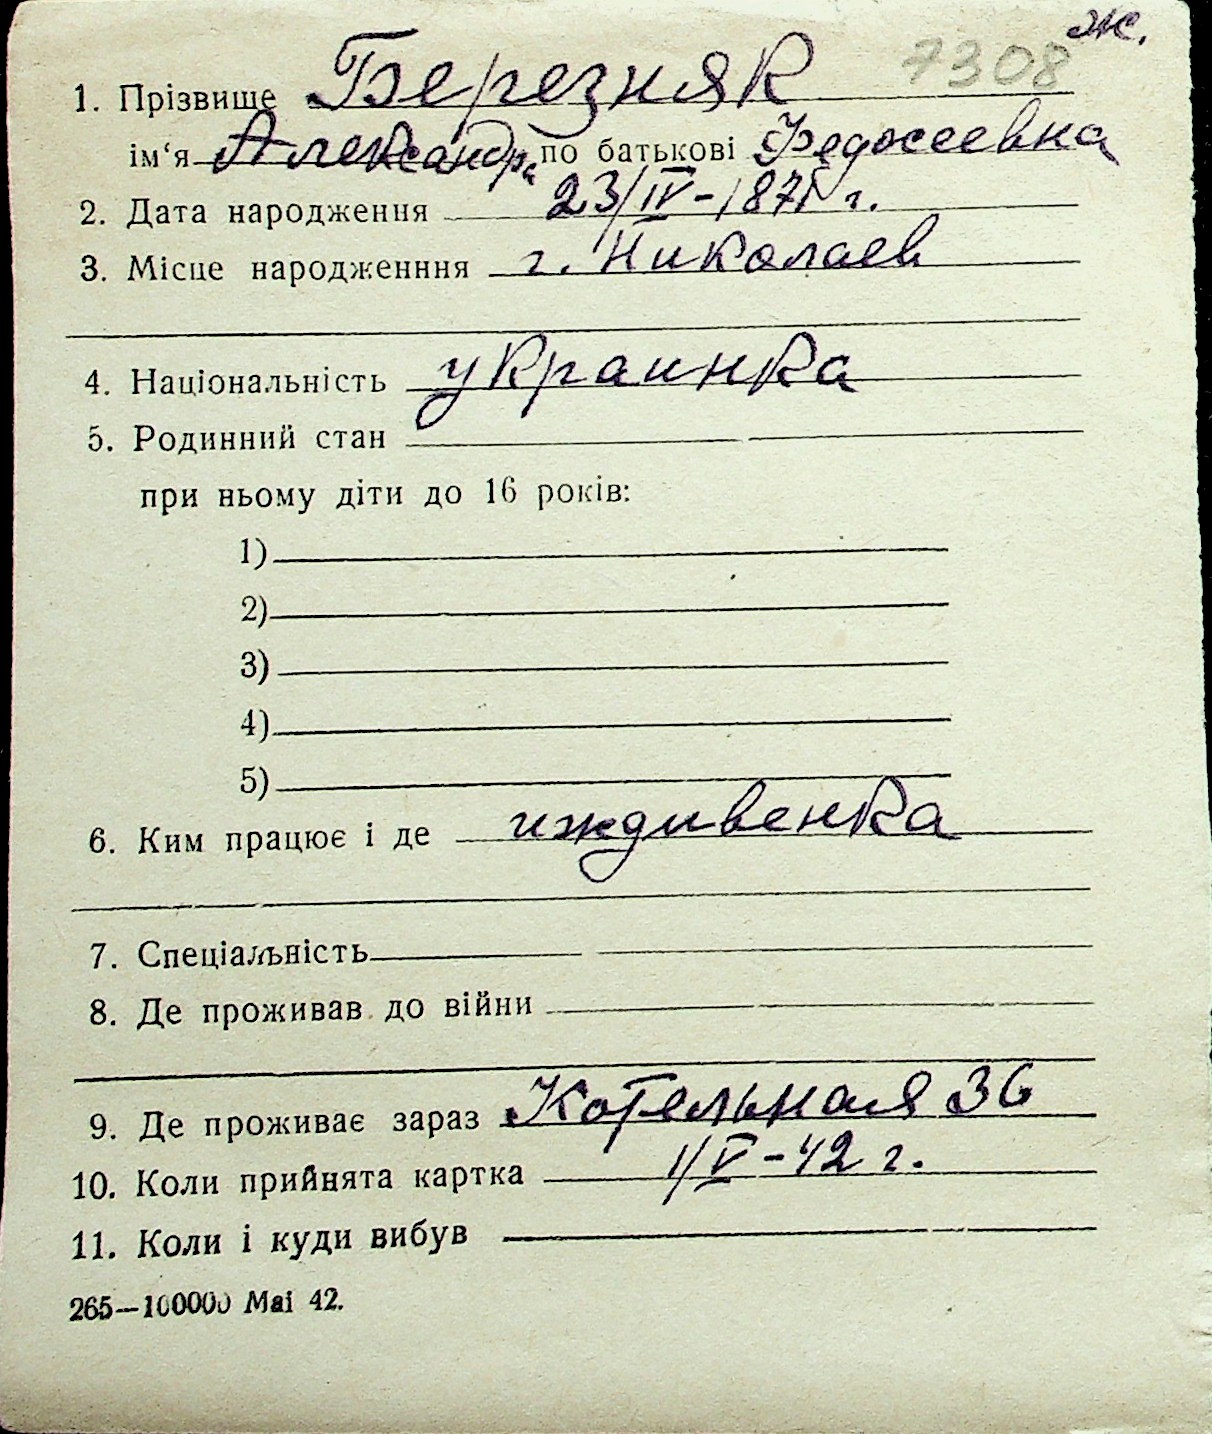 ж.
7308
1. Прізвище Березняк
ім‘я Александра по батькові Федосеевна
2. Дата народження 23/IV-1871 г.
3. Місце народженння г. Николаев
4. Національність украинка
5. Родинний стан
при ньому діти до 16 років:
1)
2)
3)
4)
5)
6. Ким працює і де иждивенка
7. Спеціальність
8. Де проживав до війни
9. Де проживає зараз Котельная 36
10. Коли прийнята картка 1/V-42 г.
11. Коли і куди вибув
265—100000 Mai 42.